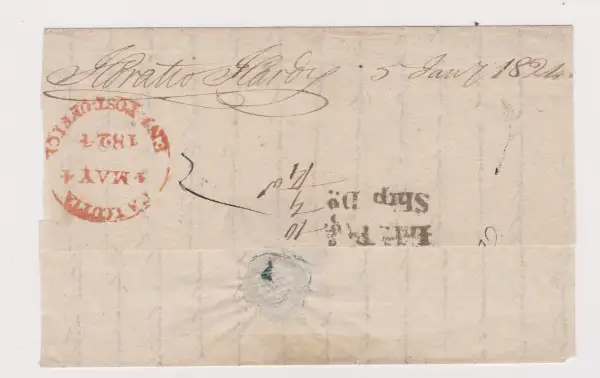 Horatio Hardy . 5 Jany 1824.
CALCUTTA
MAY
1824
GENL POST OFFICE
Ind. Pg.
Ship Do.
10